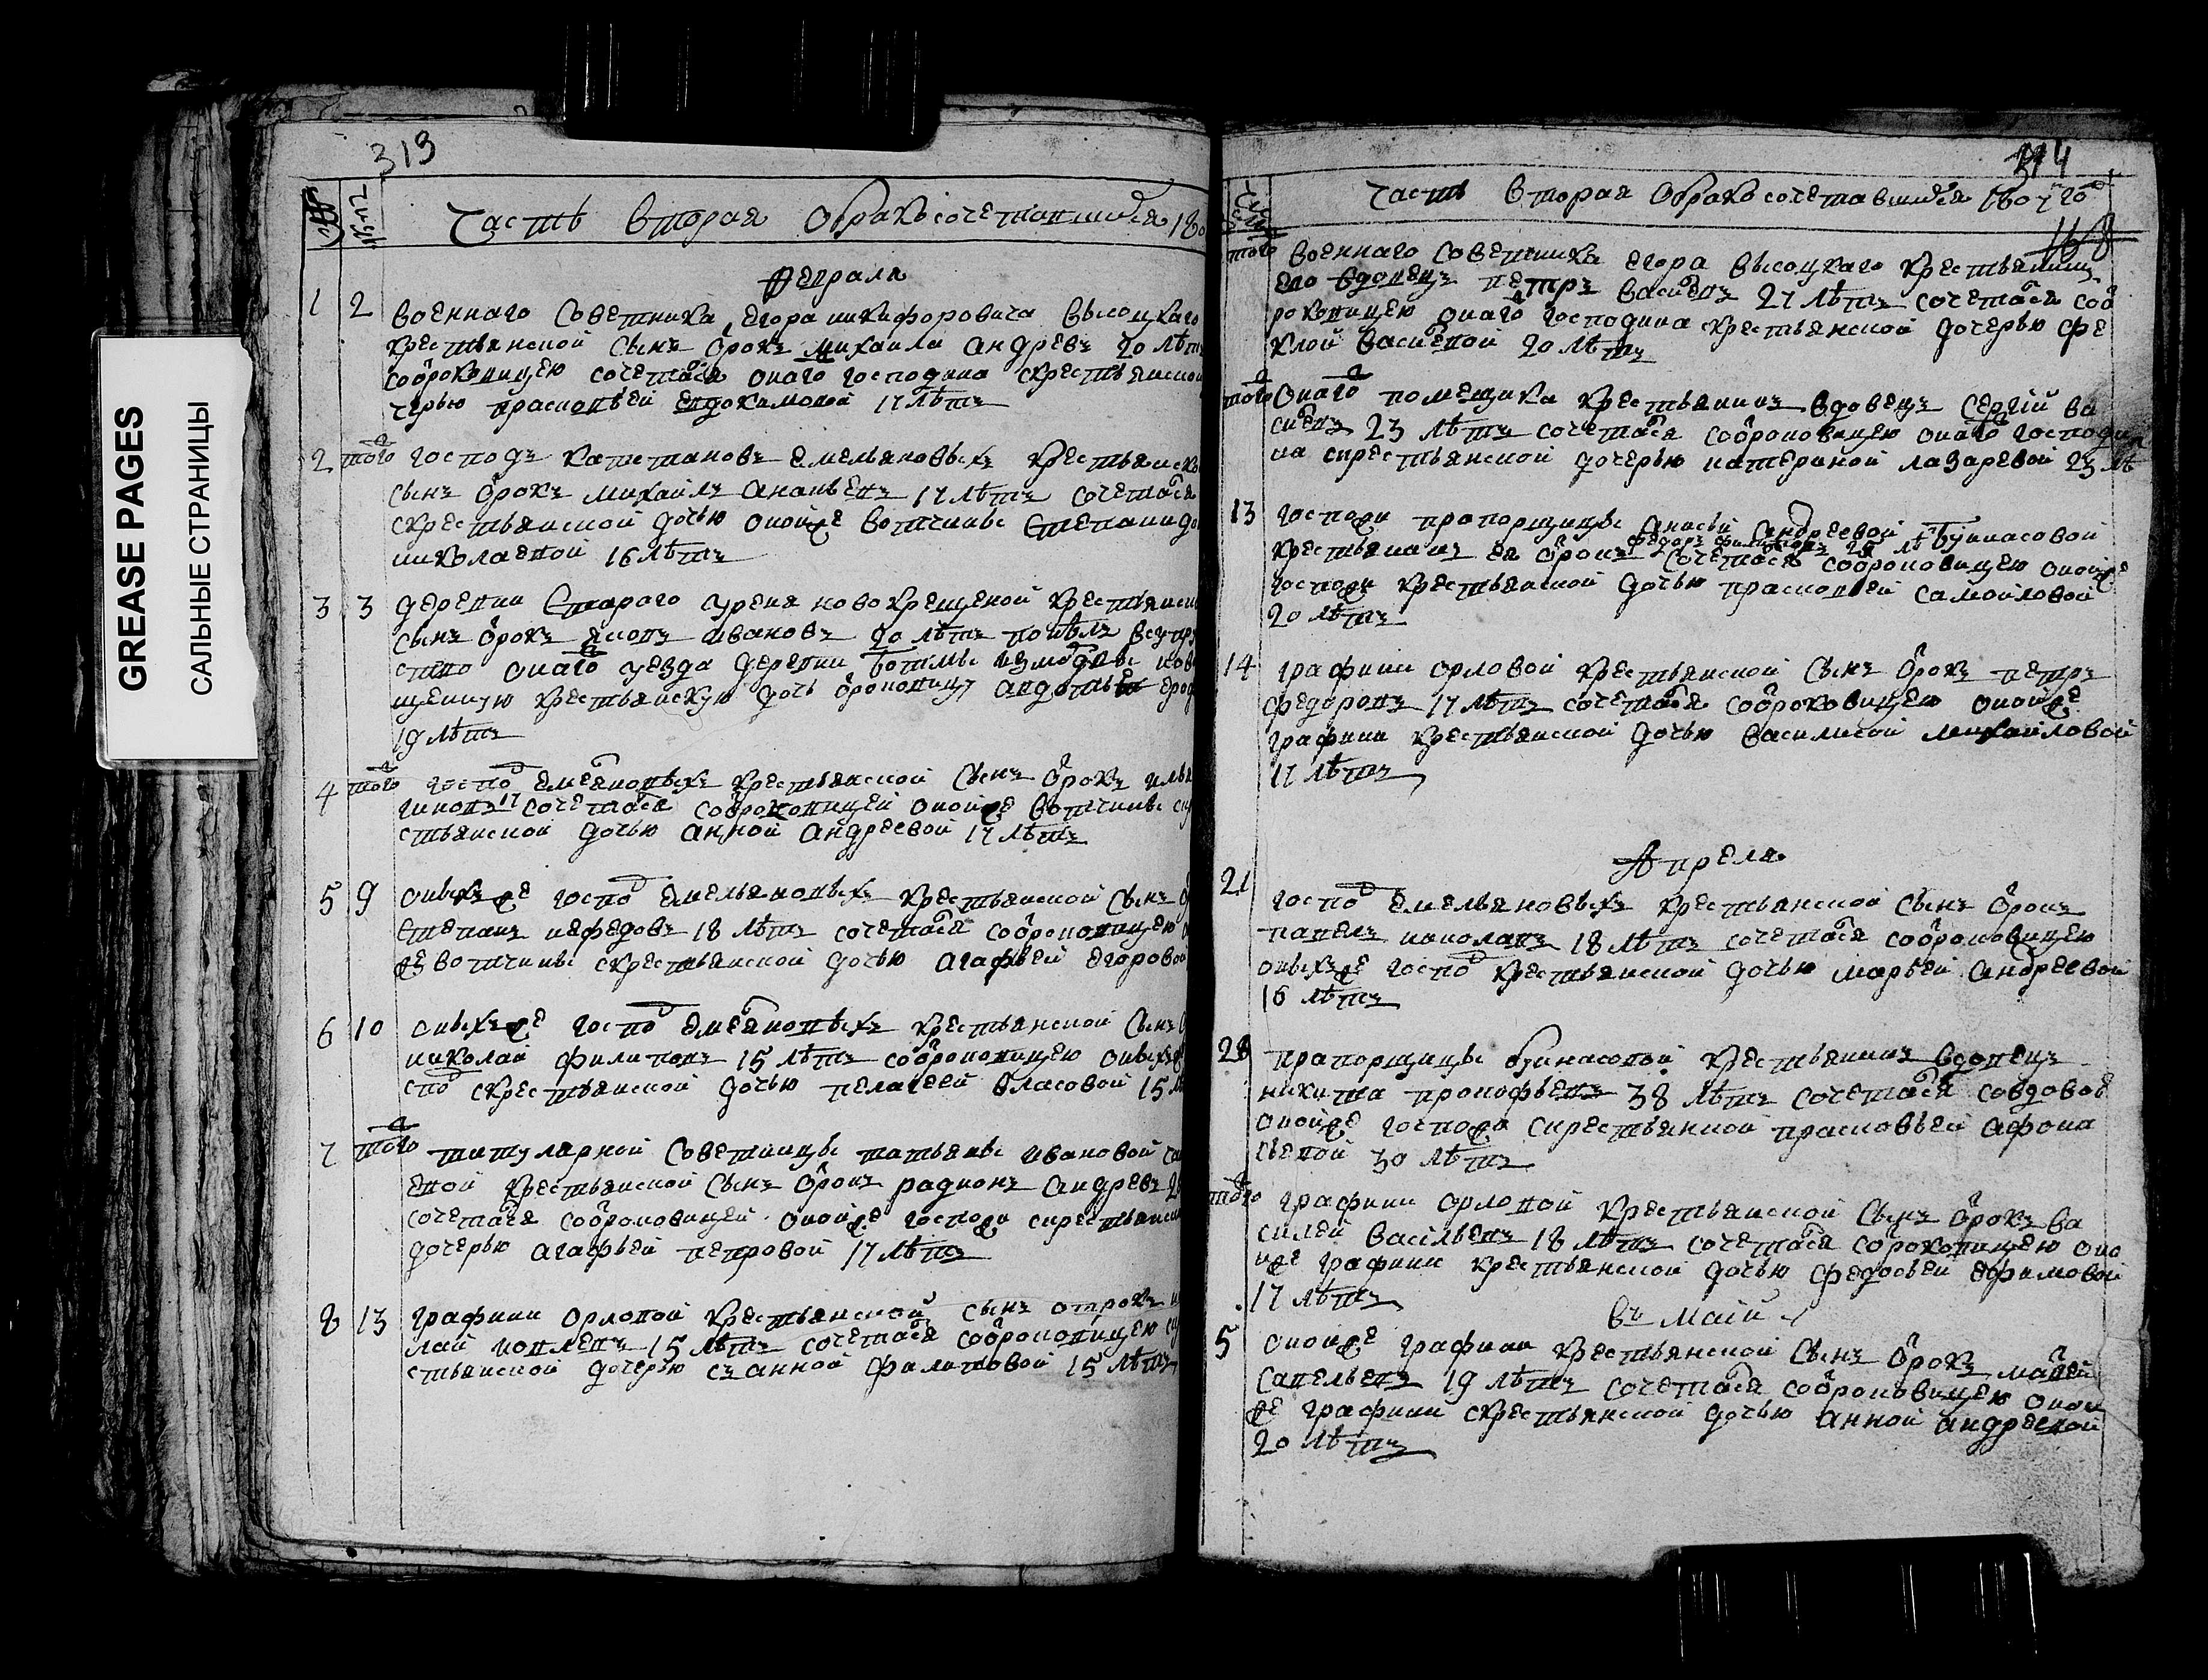 GREASE PAGES
САЛЬНЫЕ СТРАНИЦЫ
313
Часть вторая обракосочетавшихся 180
Февраля
1 2 военнаго советника егора никифоровича высоцкаго
крестьянской сынъ отрокъ михаила андревъ 20 летъ
сотроковицею сочетался онаго господина скрестьянской
черью прасковьей евдокимовой 17 летъ
2 того господъ капитановъ емельяновыхъ крестьянской
сынъ отрокъ михайлъ ананьевъ 17 летъ сочетался
скрестьянской дочью оной же вотчины степанидо
николаевой 16 летъ
3 3 деревни старого уреня новокрещеной крестьянской
сынъ отрокъ яковъ ивановъ 20 летъ понялъ всупру
ство онаго уезда деревни нов
щенную крестьянскую дочь отроковицу авдотью
19 летъ
4 того господ емельяновыхъ крестьянской сынъ отрокъ илья
17 сочетался сотроковицей оной же вотчины скр
стьянской дочью анной андреевой 17 летъ
5 9 оныхъ же господ емельяновыхъ крестьянской сынъ
степанъ нефедовъ 18 летъ сочетался сотроковицею
же вотчины скрестьянской дочью агафьей егоровой
6 10 оныхъ же господ емельяновыхъ крестьянской сынъ
николай филиповъ 15 летъ сотроковицею оныхъ
спод скрестьянской дочью пелагеей власовой 15
7 того титулярной советницы татьяны ивановой
евой крестьянской сынъ отрокъ радионъ андревъ
сочетался сотроковицей оной же госпожи скрестьянской
дочерью агафьей петровой 17 летъ
8 13 графини орловой крестьянской сынъ отрокъ
лай 15 летъ сочетался сотроковицею скр
стьянской дочерью съ анной филиповой 15 летъ
314
Часть вторая обракосочетавшихся 1807 го
того военнаго советника егора высоцкаго крестьянинъ
его вдовецъ петръ васильевъ 27 летъ сочетался сот
роковицею онаго господина крестьянской дочерью фе
клой васильевой 20 летъ
того онаго помещика крестьянинъ вдовецъ сергий ва
сильевъ 23 летъ сочетался сотроковицею онаго господи
на скрестьянской дочерью катериной лазаревой 23 ле
13 госпожи прапорщицы анисьи андреевой буинасовой
крестьянинъ ея отрокъ федоръ сочетался сотроковицею оной же
госпожи крестьянской дочью прасковьей самойловой
20 летъ
14 графини орловой крестьянской сынъ отрокъ петръ
федоровъ 17 летъ сочетался сотроковицею оной же
графини крестьянской дочью василисой михайловой
17 летъ
Апреля
21 господ емельяновыхъ крестьянской сынъ отрокъ
павелъ николаевъ 18 летъ сочетался сотроковицею
оныхъ же господ крестьянской дочью марьей андреевой
16 летъ
28 прапорщицы буинасовой крестьянинъ вдовецъ
никита прокофьевъ 38 летъ сочетался совдовое
оной же госпожи скрестьянкой прасковьей афона
сьевой 30 летъ
того графини орловой крестьянской сынъ отрокъ ва
силей васильевъ 18 летъ сочетался сотроковицею оно
йже графини крестьянской дочью федосьей ефимовой
17 летъ
въ маии
5 оной же графини крестьянской сынъ отрокъ матвей
савельевъ 19 летъ сочетался сотроковицею оной
же графини скрестьянской дочью анной андреевой
20 летъ